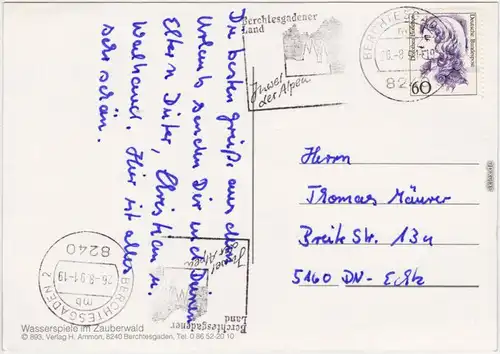 Die besten Grüße aus dem
Urlaub senden Dir und Deinen
Eltern Dieter, Christian u.
Waltraud. Hier ist alles
sehr schön.
Berchtesgadener
Land
Juwel
der Alpen
BERCHTESGADEN
8240
Deutsche Bundespost
60
Herrn
Thomas Mäurer
Breite Str. 13a
5160 DN-Echtz
8240
26.-8.91-19
mb
BERCHTESGADEN 2
Juwel
der Alpen
Berchtesgadener
Land
Wasserspiele im Zauberwald
© 893, Verlag H. Ammon, 8240 Berchtesgaden, Tel. 0 86 52-20 10